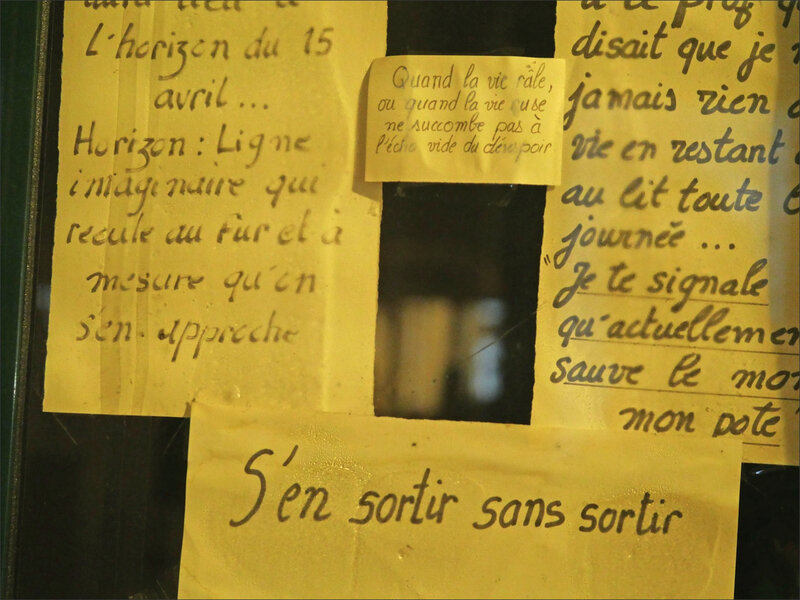 L'horizon du 15
avril ...
Horizon : Ligne
imaginaire qui
recule au fur et à
mesure qu'on
s'en approche
Quand la vie râle,
ou quand la vie use
ne succombe pas à
l'écho vide du désespoir
à le prof
disait que je
jamais rien
vie en restant
au lit toute
journée ...
"Je te signale
qu'actuellement
sauve le
mon pote"
S'en sortir sans sortir